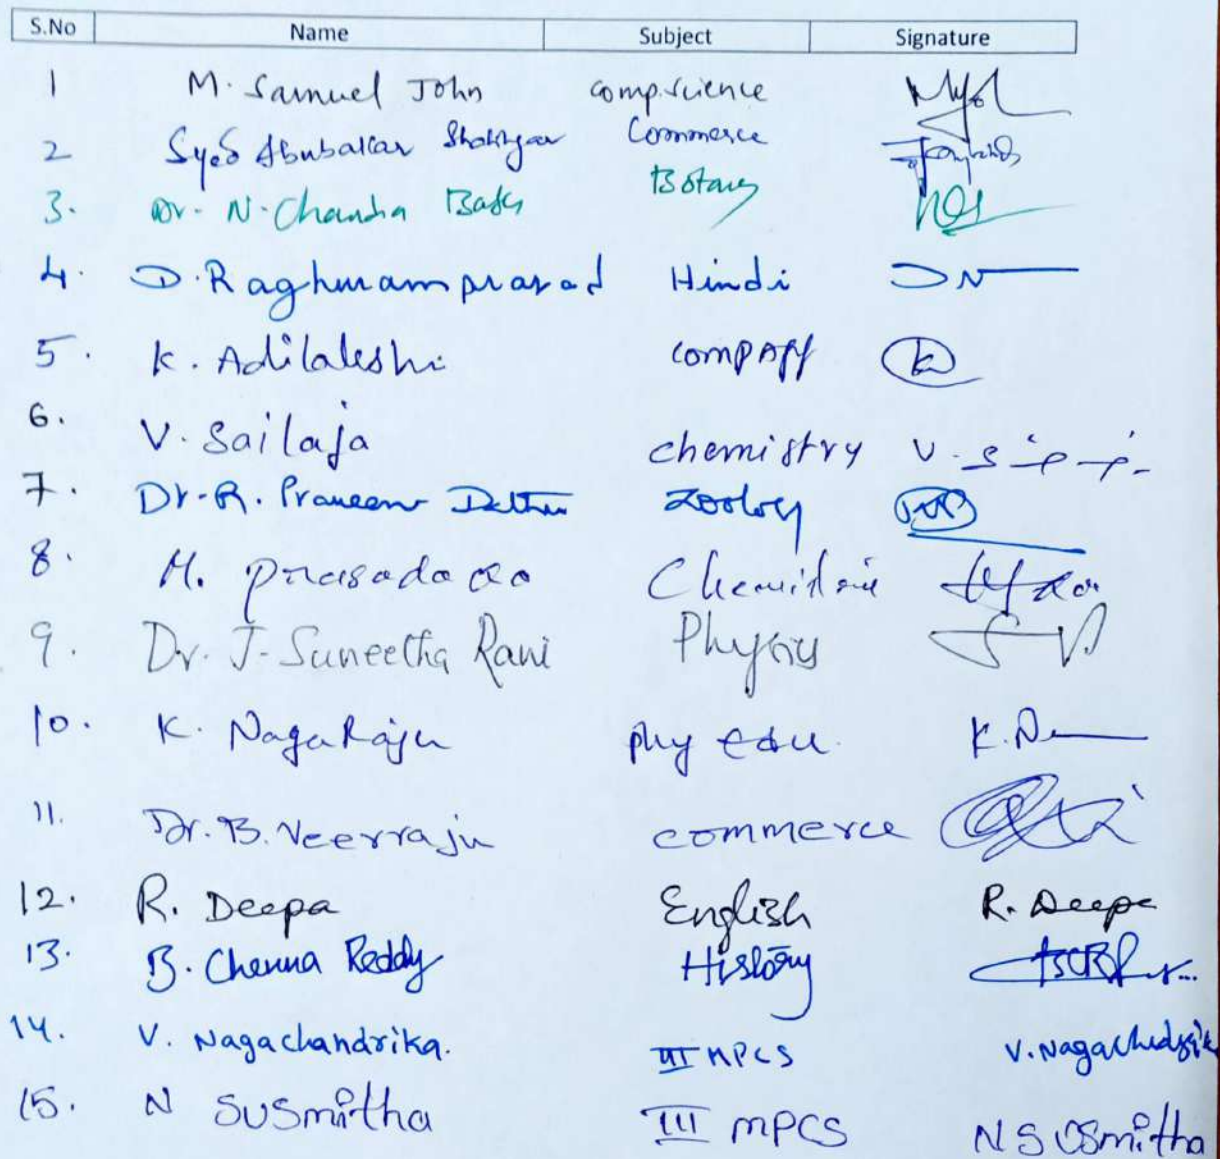 S.No Name Subject Signature
1 M. Samuel John comp.science
2 Syed Abubakar Commerce
3. Dr. N. Chandra Botany
4. D. Raghuram prasad Hindi
5. K. Adilakshi compApp
6. V. Sailaja chemistry
7. Dr. R. Praveen Zoology
8. M. prasada Rao
9. Dr. J. Suneetha Rani Physics
10. K. NagaRaju phy edu.
11. Dr. B. Veerraju commerce
12. R. Deepa English R. Deepa
13. B. Chenna Reddy History
14. V. Nagachandrika. III MPCS
15. N SUSmitha III MPCS N SUSmitha